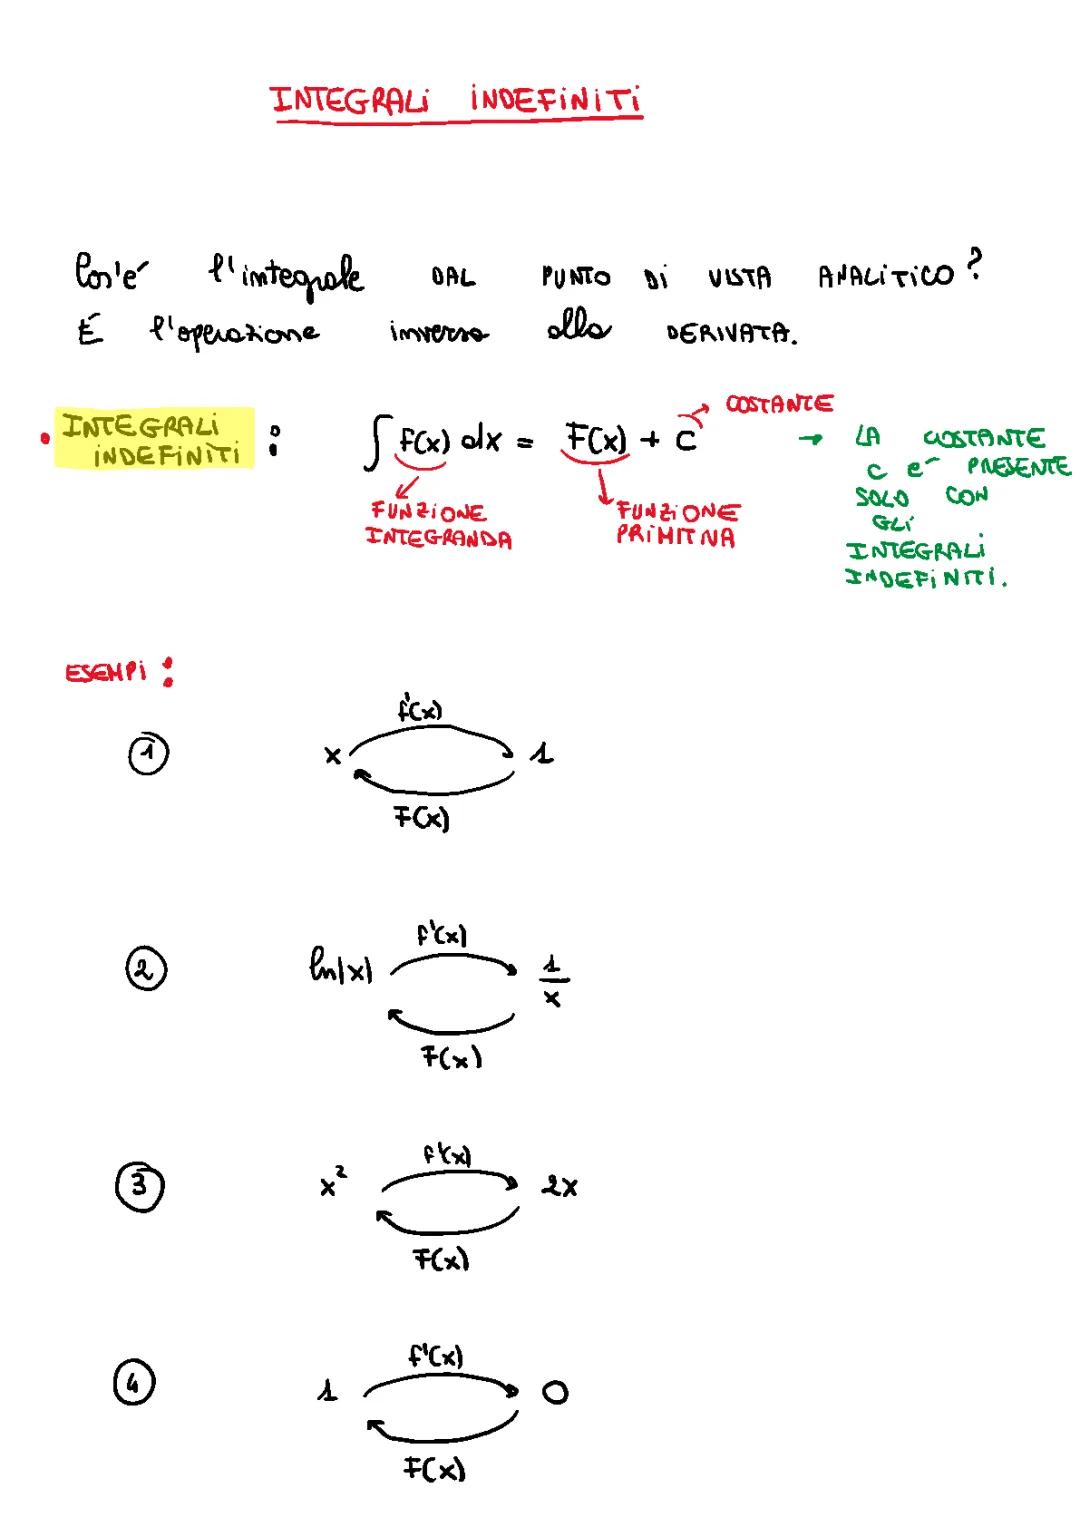 INTEGRALI INDEFINITI
Cos'è l'integrale DAL PUNTO DI VISTA ANALITICO?
È l'operazione inversa alla DERIVATA.
• INTEGRALI INDEFINITI : ∫ f(x) dx = F(x) + C
COSTANTE
FUNZIONE INTEGRANDA
FUNZIONE PRIMITIVA
→ LA COSTANTE
C è PRESENTE
SOLO CON
GLI
INTEGRALI
INDEFINITI.
ESEMPI :
f'(x)
① x 1
F(x)
f'(x)
② ln|x| 1/x
F(x)
f'(x)
③ x² 2x
F(x)
f'(x)
④ 1 0
F(x)